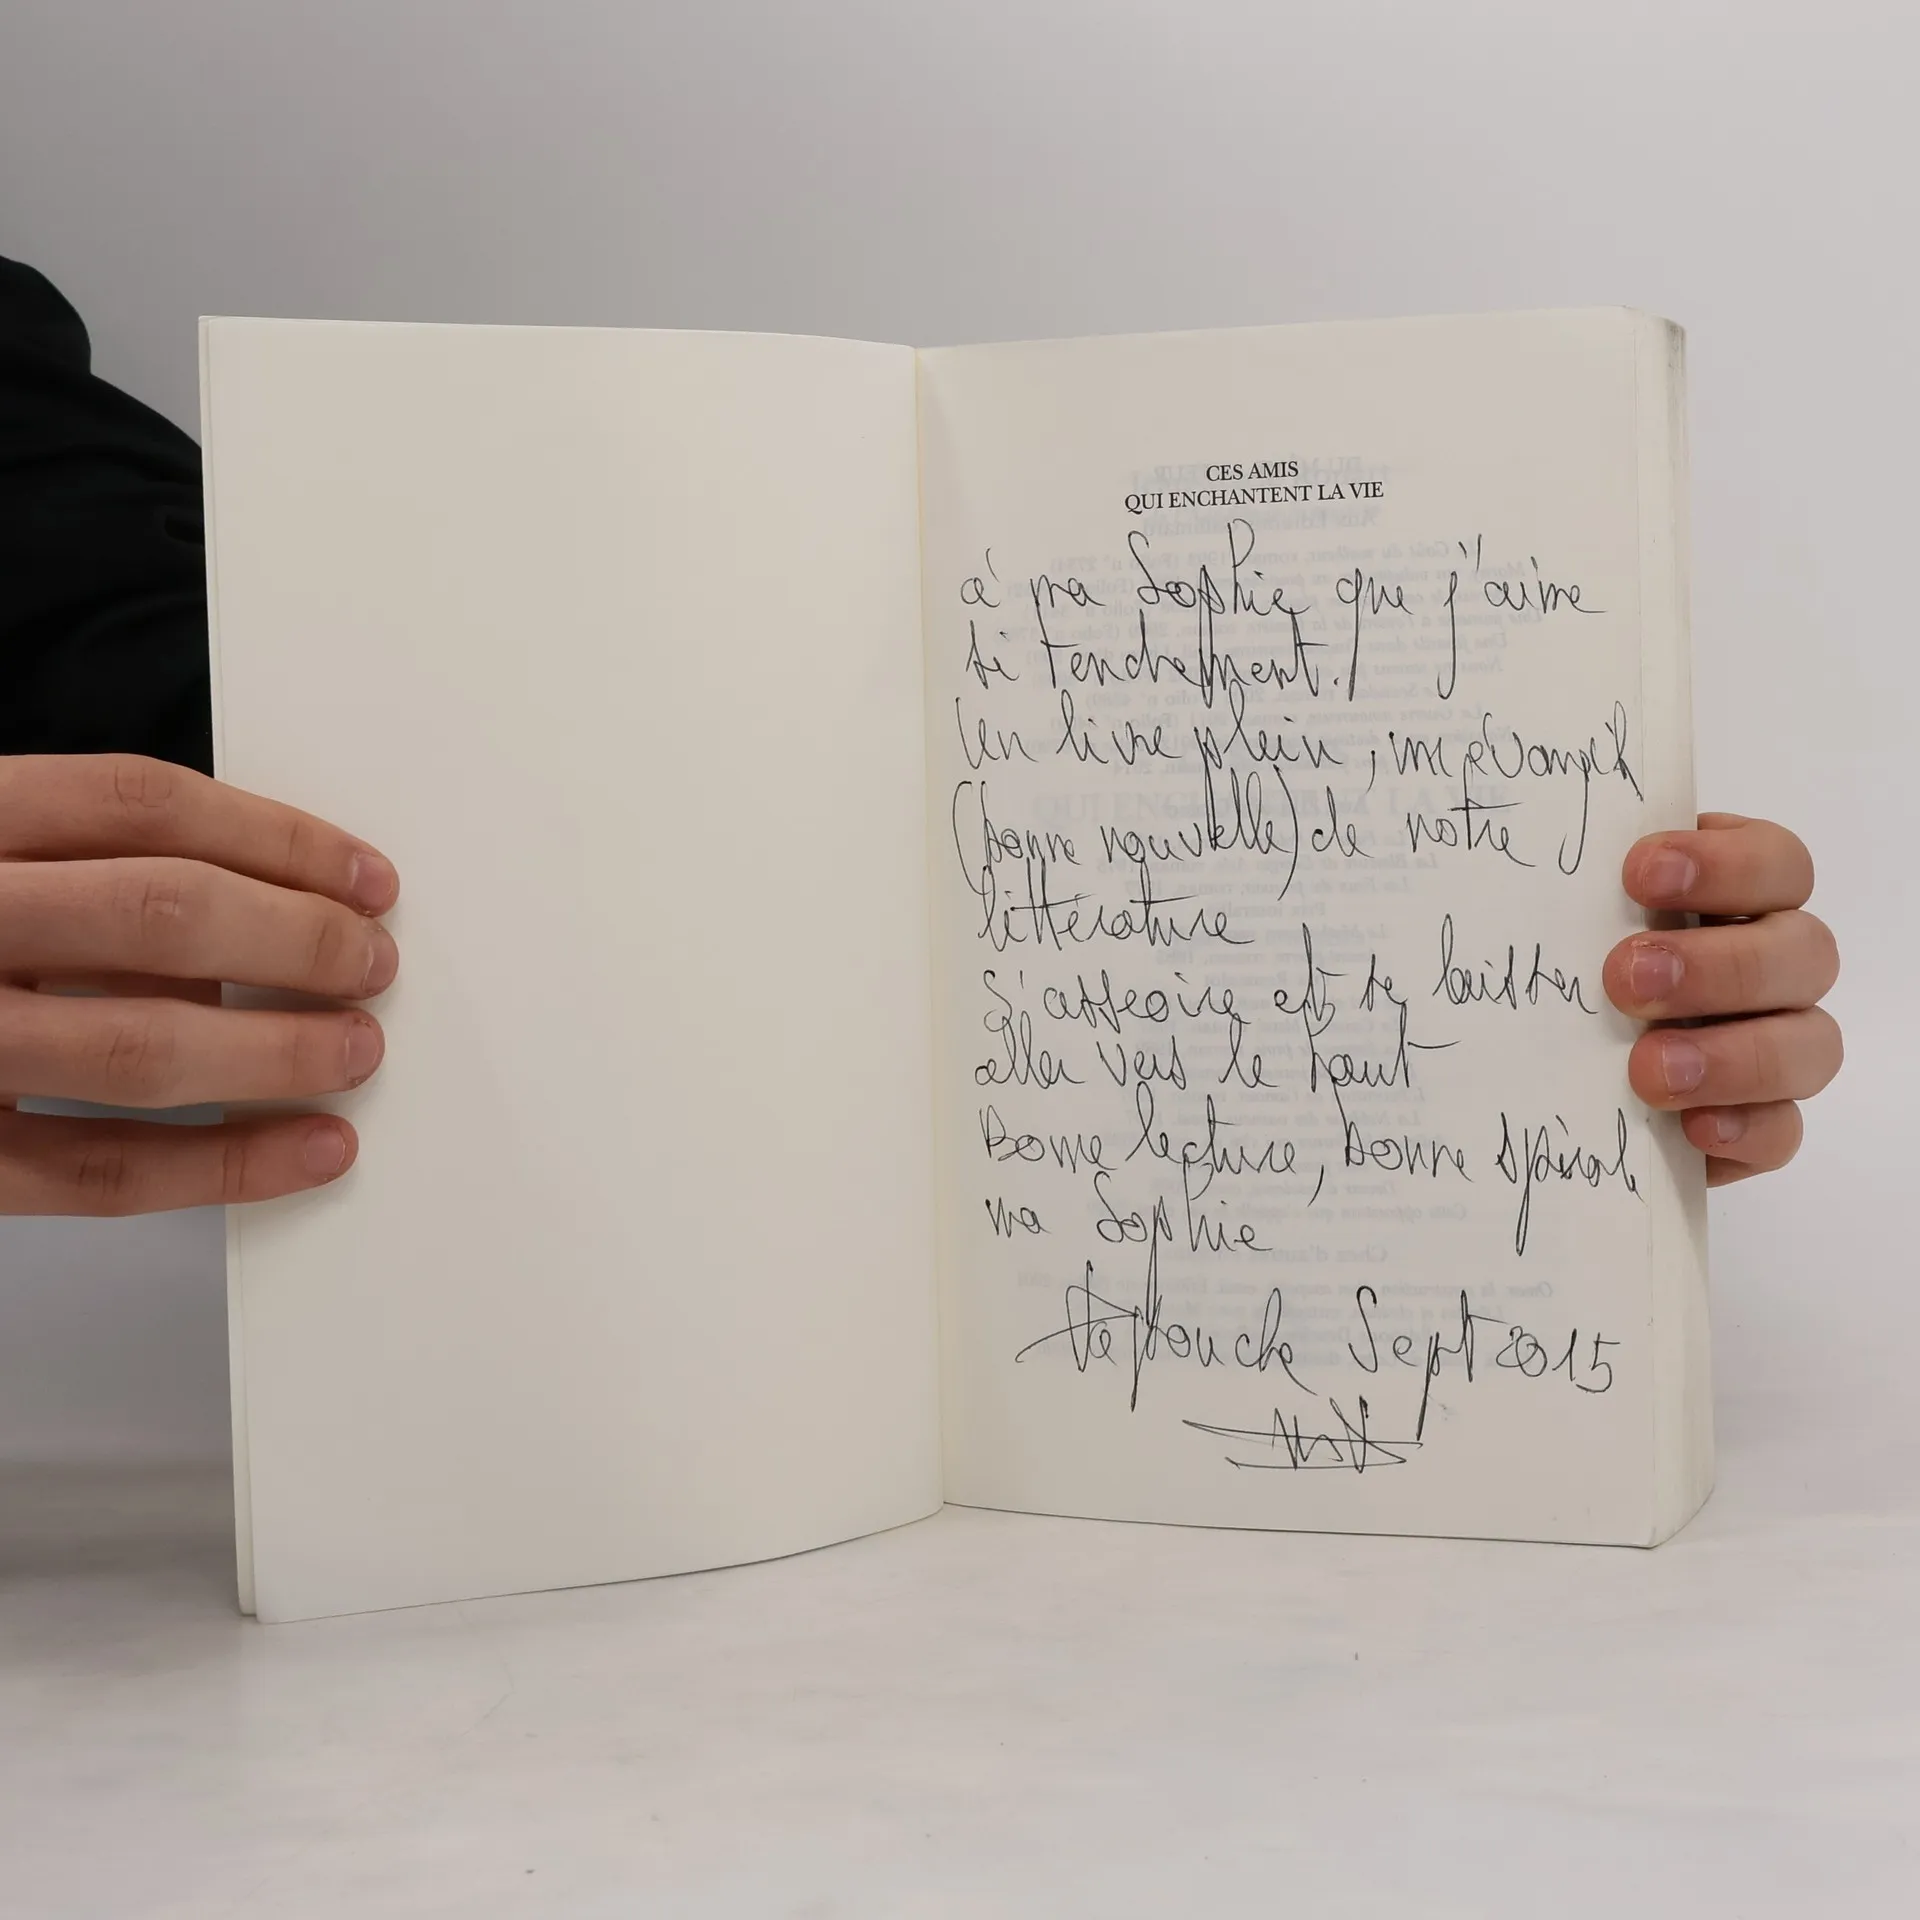 CES AMIS
QUI ENCHANTENT LA VIE
à ma Sophie que j'aime
si tendrement.
Un livre plein, un évangile
(bonne nouvelle) de notre
littérature
S'asseoire et se laisser
aller vers le haut
Bonne lecture, bonne spirale
ma Sophie
Sept 2015